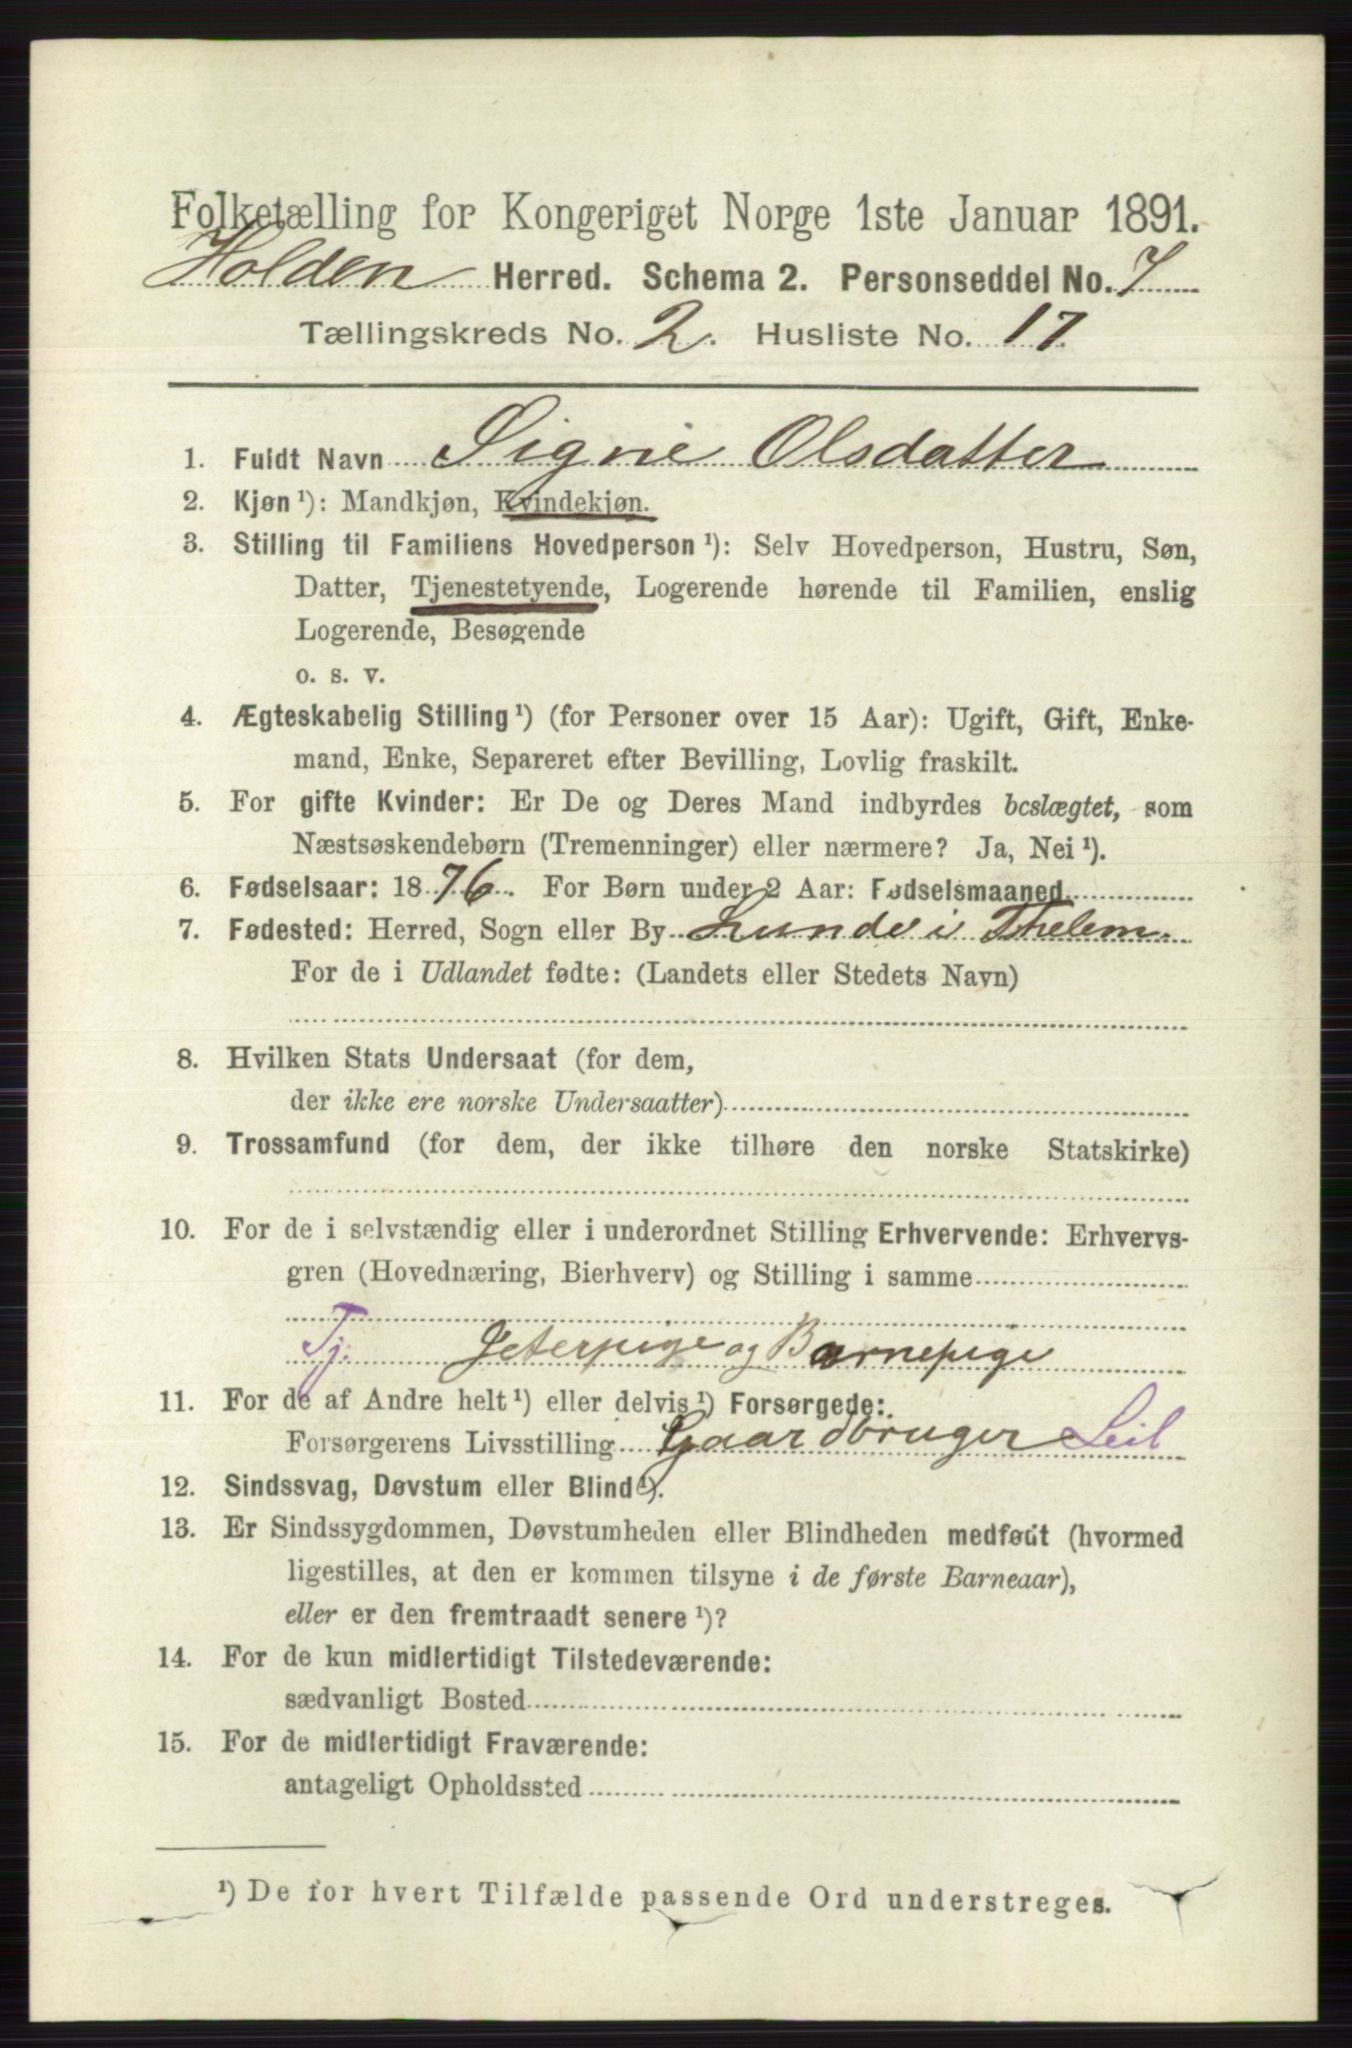 Folketælling for Kongeriget Norge 1ste Januar 1891.
Holden Herred. Schema 2. Personseddel No. 7
Tællingskreds No. 2. Husliste No. 17.
1. Fuldt Navn Signe Olsdatter
2. Kjøn¹): Mandkjøn, Kvindekjøn.
3. Stilling til Familiens Hovedperson¹): Selv Hovedperson, Hustru, Søn,
Datter, Tjenestetyende, Logerende hørende til Familien, enslig
Logerende, Besøgende
o. s. v.
4. Ægteskabelig Stilling¹) (for Personer over 15 Aar): Ugift, Gift, Enke-
mand, Enke, Separeret efter Bevilling, Lovlig fraskilt.
5. For gifte Kvinder: Er De og Deres Mand indbyrdes beslægtet, som
Næstsøskendebørn (Tremenninger) eller nærmere? Ja, Nei¹).
6. Fødselsaar: 1876. For Børn under 2 Aar: Fødselsmaaned
7. Fødested: Herred, Sogn eller By Lunde i Thelem.
For de i Udlandet fødte: (Landets eller Stedets Navn)
8. Hvilken Stats Undersaat (for dem,
der ikke ere norske Undersaatter)
9. Trossamfund (for dem, der ikke tilhøre den norske Statskirke)
10. For de i selvstændig eller i underordnet Stilling Erhvervende: Erhvervs-
gren (Hovednæring, Bierhverv) og Stilling i samme
Tj. Jeterpige og Barnepige
11. For de af Andre helt¹) eller delvis¹) Forsørgede:
Forsørgerens Livsstilling Gaardbruger Leil
12. Sindssvag, Døvstum eller Blind¹).
13. Er Sindssygdommen, Døvstumheden eller Blindheden medfødt (hvormed
ligestilles, at den er kommen tilsyne i de første Barneaar),
eller er den fremtraadt senere¹)?
14. For de kun midlertidigt Tilstedeværende:
sædvanligt Bosted
15. For de midlertidigt Fraværende:
antageligt Opholdssted
¹) De for hvert Tilfælde passende Ord understreges.